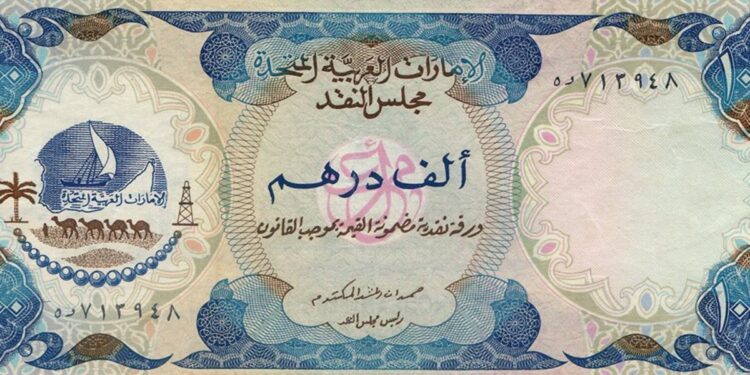 الإمارات العربية المتحدة
مجلس النقد
٧١٣٩٤٨ ده
ألف درهم
ورقة نقدية مضمونة القيمة بموجب القانون
حمدان راشد المكتوم
رئيس مجلس النقد
الإمارات العربية المتحدة
٧١٣٩٤٨ ده